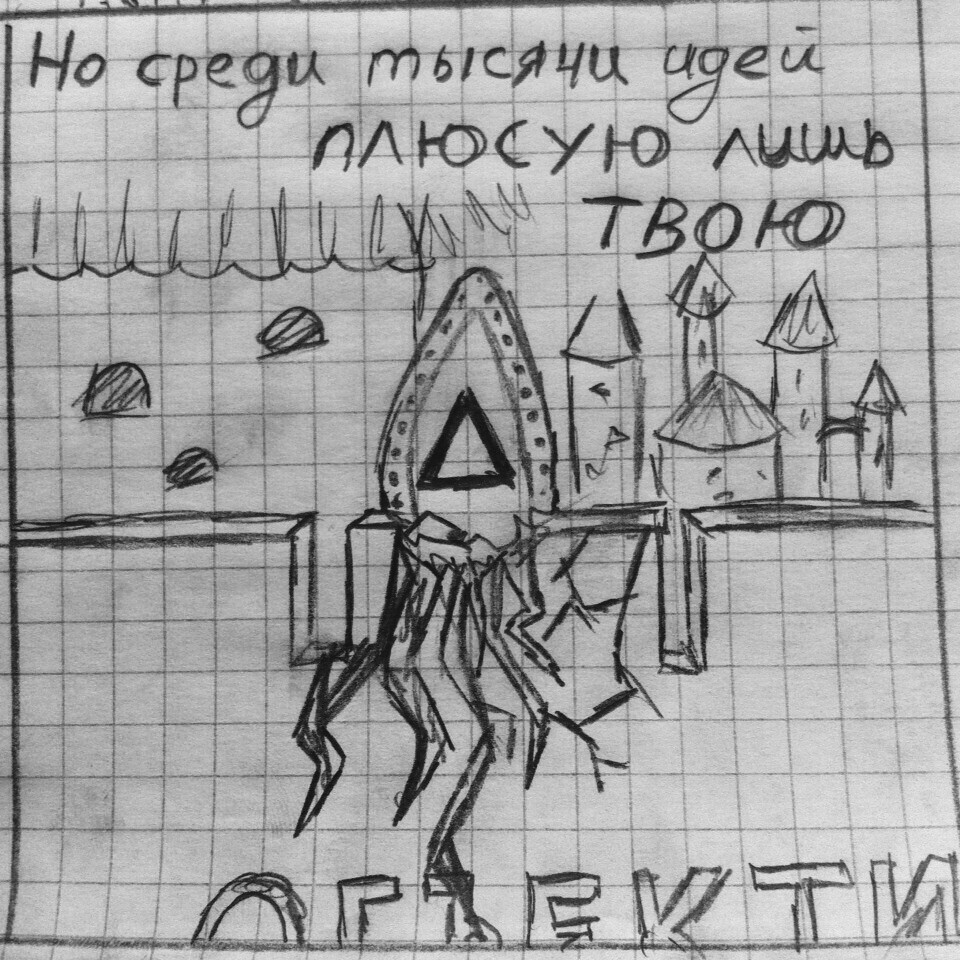 Но среди тысячи идей
плюсую лишь
ТВОЮ
ОБЪЕКТИ